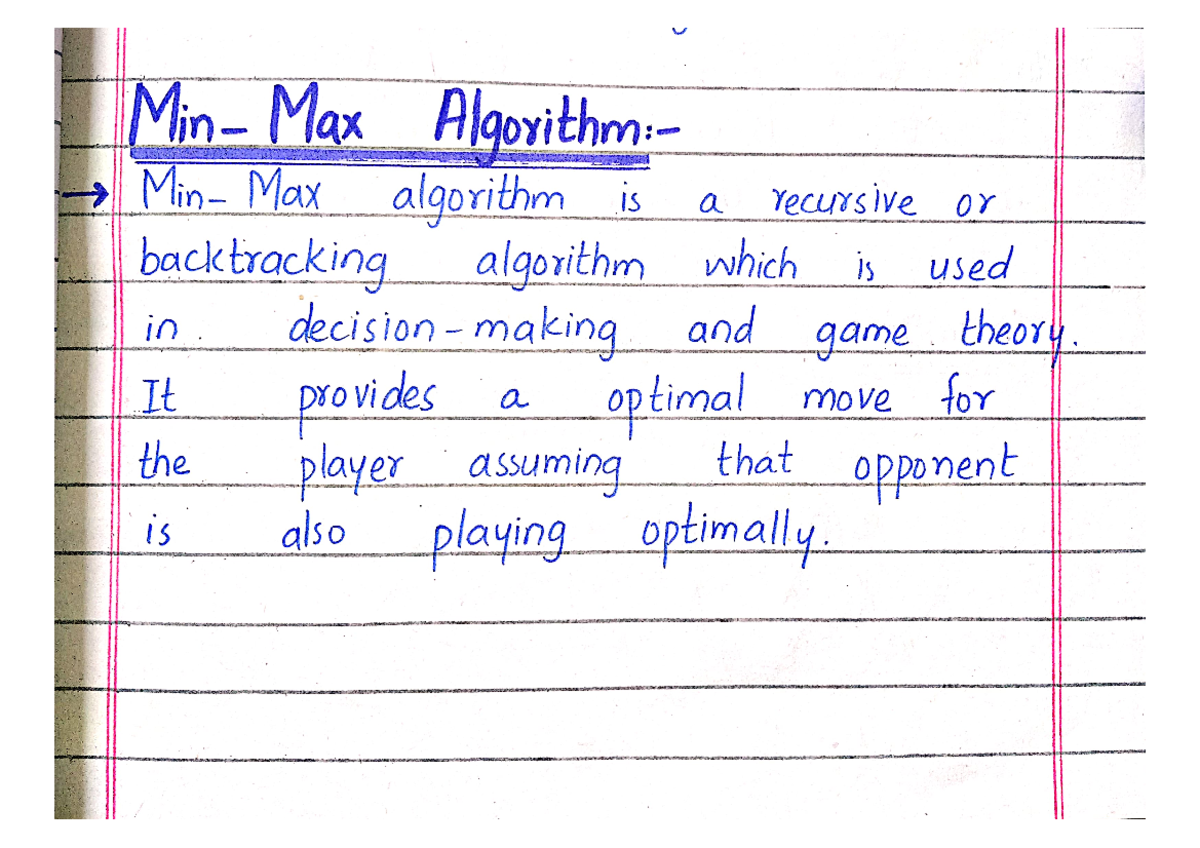 Min- Max Algorithm:-
→ Min- Max algorithm is a recursive or
backtracking algorithm which is used
in decision-making and game theory.
It provides a optimal move for
the player assuming that opponent
is also playing optimally.